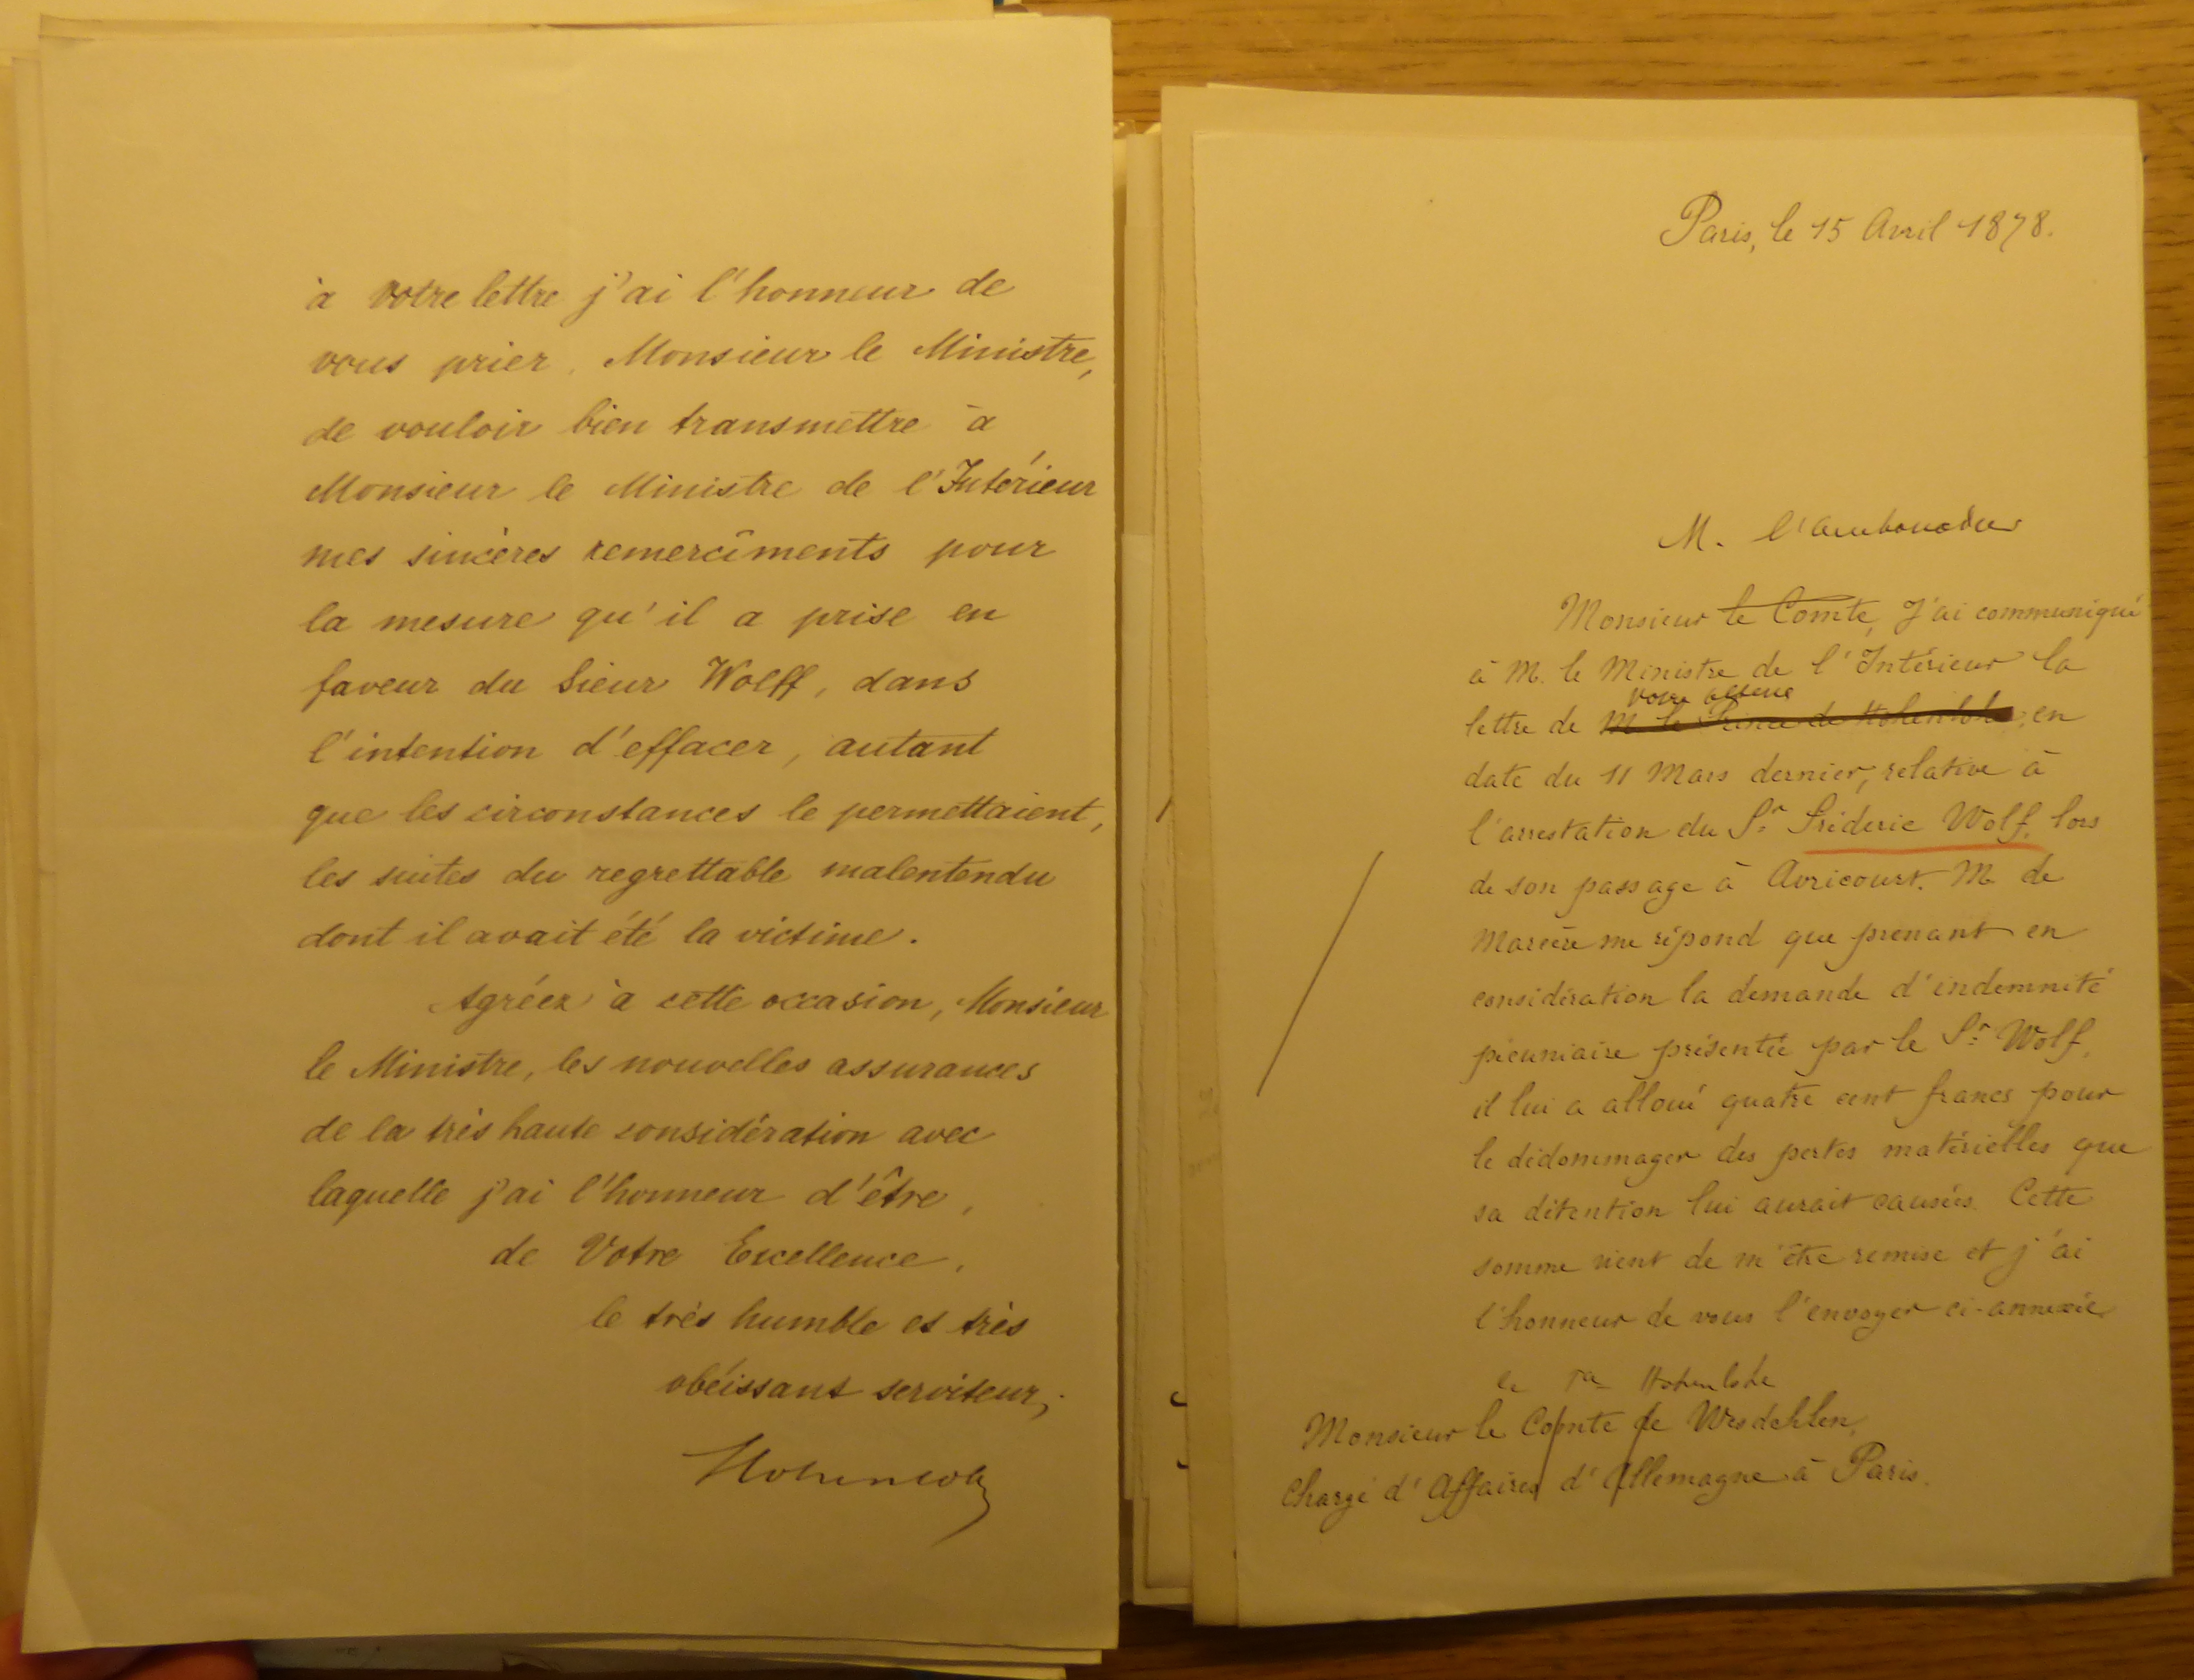 à votre lettre j'ai l'honneur de
vous prier, Monsieur le Ministre,
de vouloir bien transmettre à
Monsieur le Ministre de l'Intérieur
mes sincères remercîments pour
la mesure qu'il a prise en
faveur du Sieur Wolff, dans
l'intention d'effacer, autant
que les circonstances le permettaient,
les suites du regrettable malentendu
dont il avait été la victime.
Agréez à cette occasion, Monsieur
le Ministre, les nouvelles assurances
de la très haute considération avec
laquelle j'ai l'honneur d'être,
de Votre Excellence,
le très humble et très
obéissant serviteur,
Hohenlohe
Paris, le 15 Avril 1878.
M. l'ambassadeur
Monsieur le Comte, J'ai communiqué
à M. le Ministre de l'Intérieur la
votre altesse
lettre de M. le Prince de Hohenlohe, en
date du 11 Mars dernier, relative à
l'arrestation du Sr. Fréderic Wolf, lors
de son passage à Avricourt. M. de
Marcère me répond que prenant en
considération la demande d'indemnité
pécuniaire présentée par le Sr. Wolf,
il lui a alloué quatre cent francs pour
le dédommager des pertes matérielles que
sa détention lui aurait causées. Cette
somme vient de m'être remise et j'ai
l'honneur de vous l'envoyer ci-annexée
le Hohenlohe
Monsieur le Comte de Wesdehlen,
Chargé d'Affaires d'Allemagne à Paris.